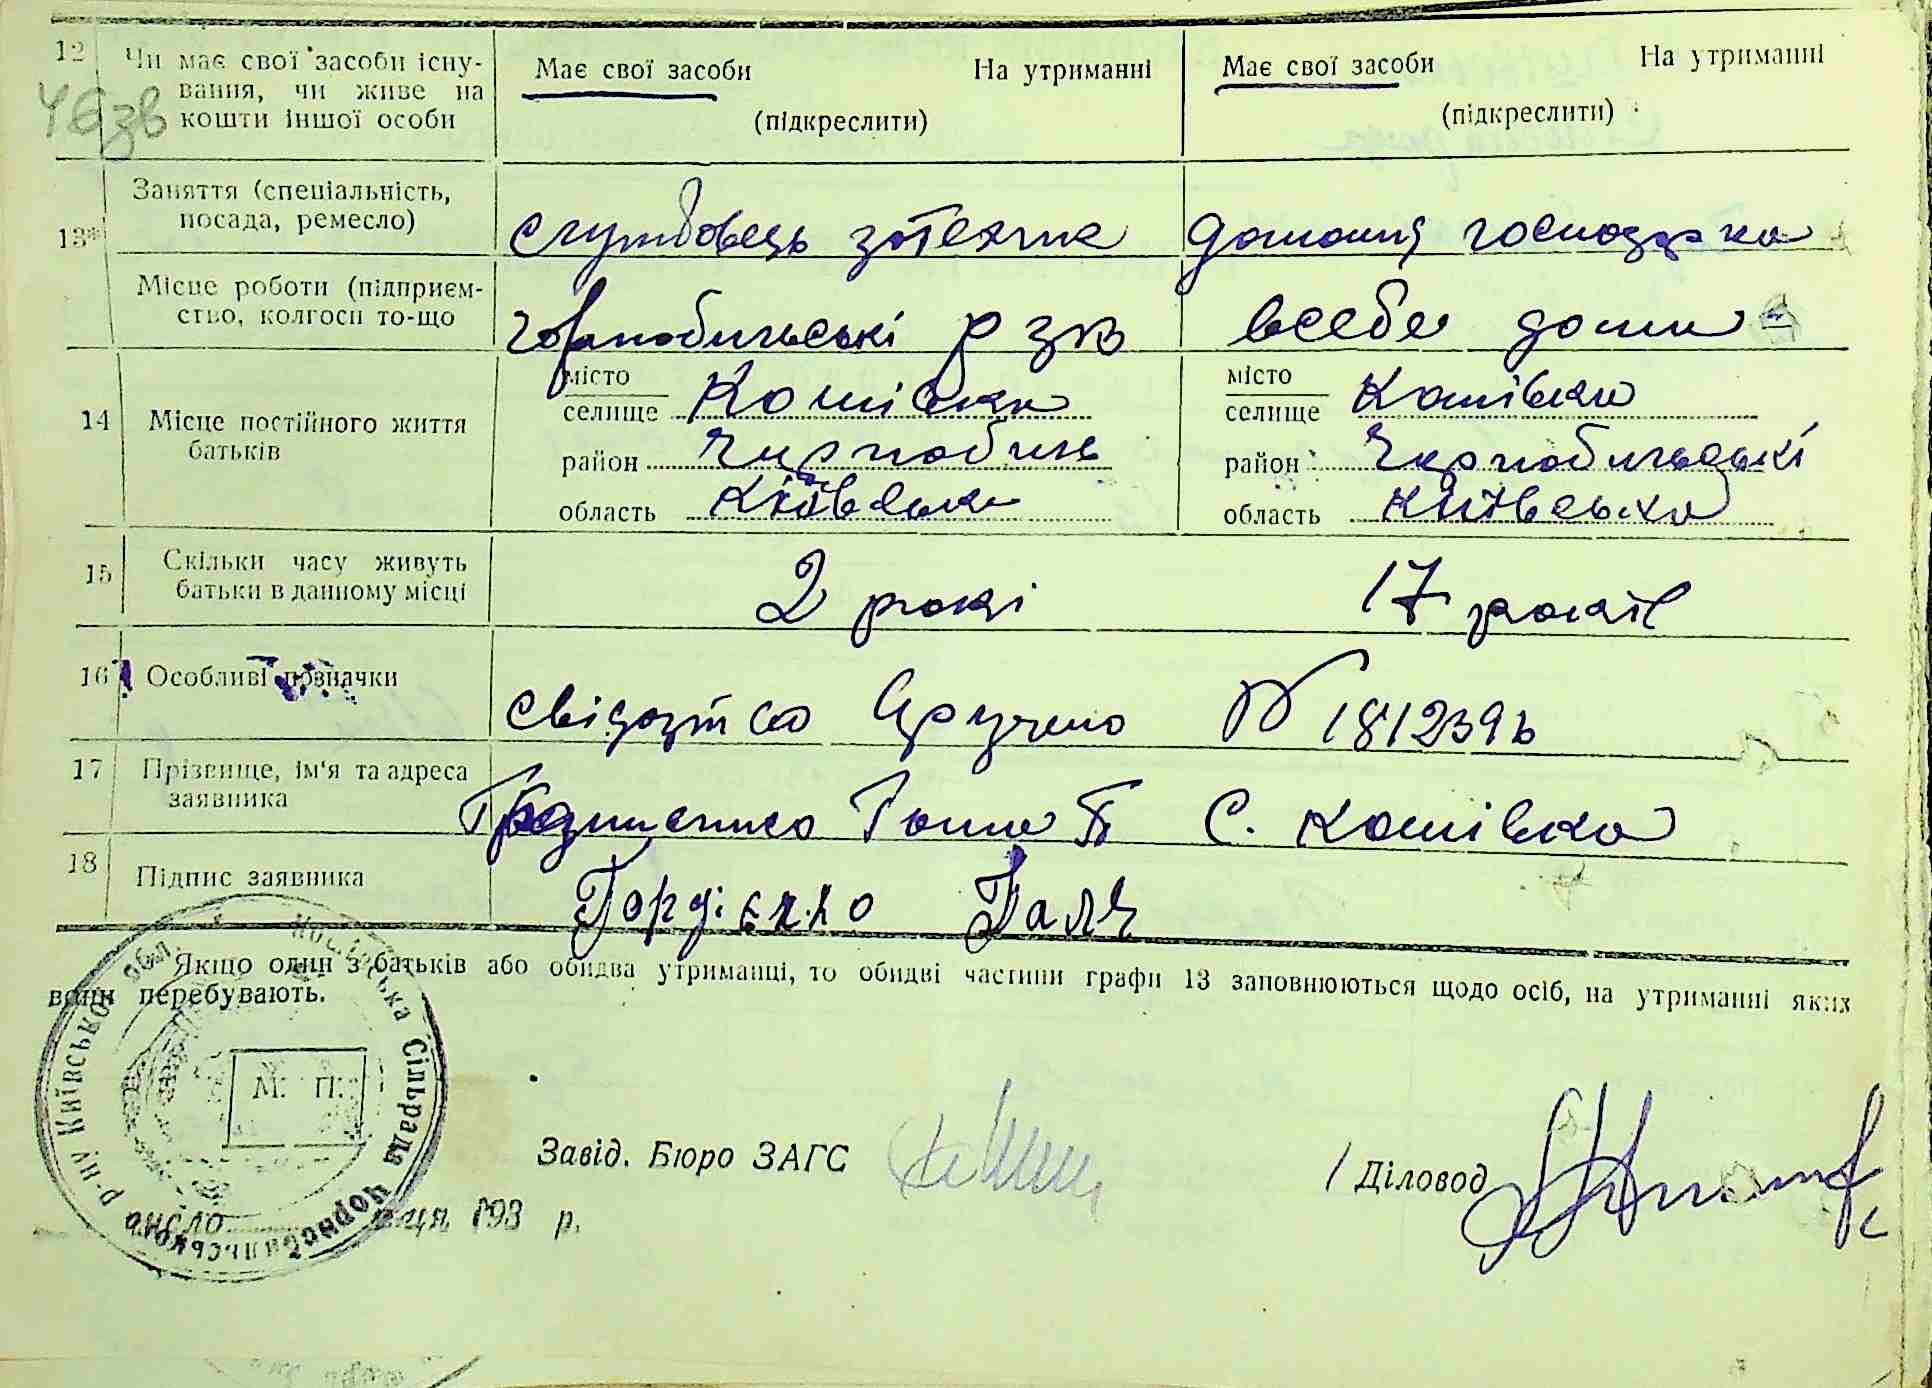 12 Чи має свої засоби існу-
вання, чи живе на
кошти іншої особи
Має свої засоби На утриманні
(підкреслити)
Має свої засоби На утриманні
(підкреслити)
13* Заняття (спеціальність,
посада, ремесло)
службовець зотехнік
домашня господарка
Місце роботи (підприєм-
ство, колгосп то-що
чорнобильські рзв
всебе дома
14 Місце постійного життя
батьків
місто
селище Кошівка
район Чирнобиль
область Київська
місто
селище Кошівка
район Чирнобильські
область Київська
15 Скільки часу живуть
батьки в данному місці
2 рокі
17 років
16 Особливі позначки
свідотво Вручено № 181239
17 Прізвище, ім'я та адреса
заявника
с. Кошівка
18 Підпис заявника
Гордієнко Галя
Якщо один з батьків або обидва утриманці, то обидві частини графи 13 заповнюються щодо осіб, на утриманні яких
вони перебувають.
М. П.
р-ну Київської обл. Сільрада Чорнобильського
число 193 р.
Завід. Бюро ЗАГС
Діловод